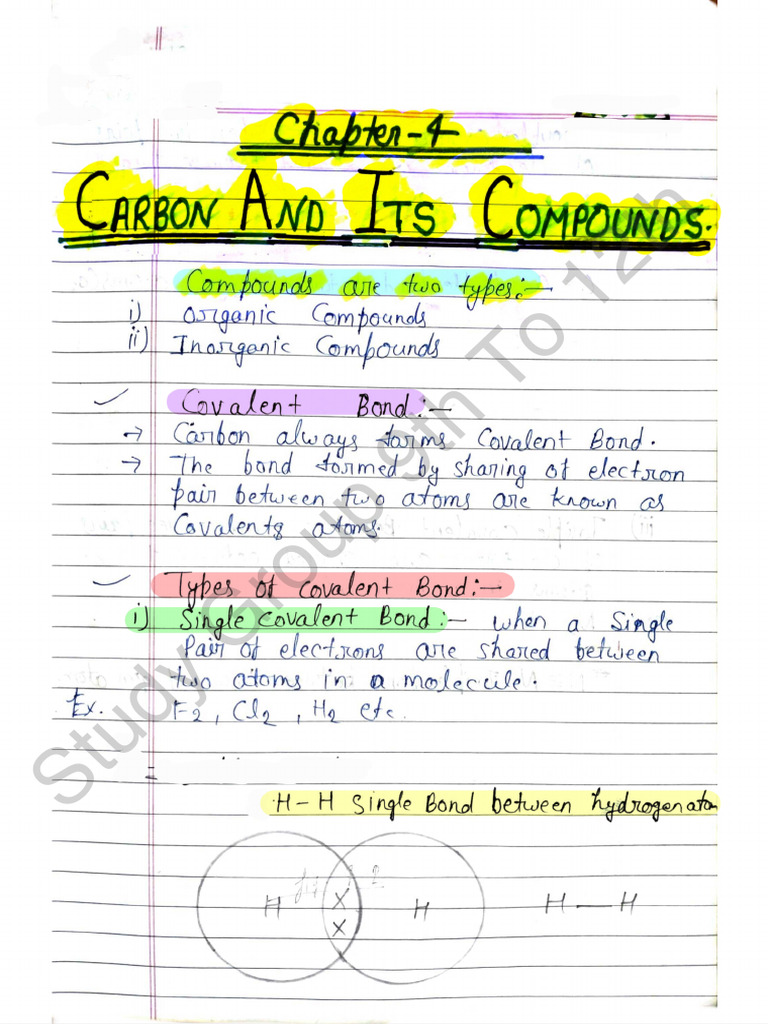 Chapter-4
CARBON AND ITS COMPOUNDS.
Compounds are two types:-
i) Organic Compounds
ii) Inorganic Compounds
Covalent Bond:-
→ Carbon always forms Covalent Bond.
→ The bond formed by sharing of electron
pair between two atoms are known as
Covalents atoms.
Types of Covalent Bond:-
i) Single Covalent Bond:- when a Single
Pair of electrons are shared between
two atoms in a molecule.
Ex. F2, Cl2, H2 etc.
H-H Single Bond between hydrogen atom
H X X H H — H
Study Group 9th To 12th